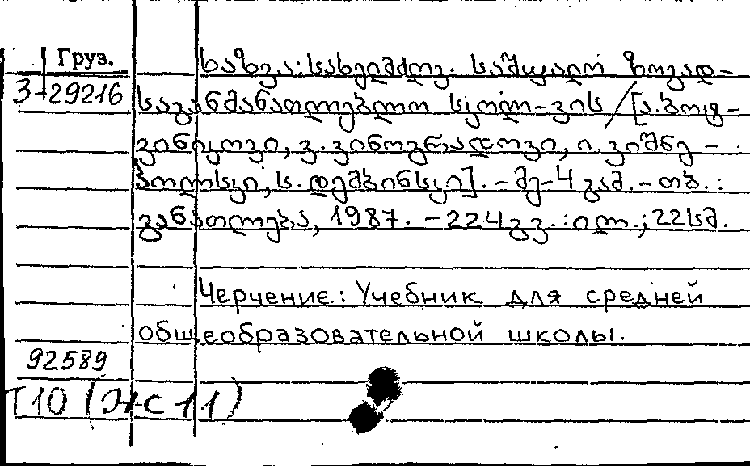 Груз.
ხაზვა: სახელმძღვ. საშუალო ზოგად-
3-29216
საგანმანათლებლო სკოლი-ვის / [ა. ბოტ-
ვინიკოვი, ვ. ვინოგრადოვი, ი. ვიშნე-
პოლსკი, ს. დემბინსკი]. - მე-4 გამ. - თბ. :
განათლება, 1987. - 224 გვ. : ილ. ; 22 სმ.
Черчение: Учебник для средней
общеобразовательной школы.
92589